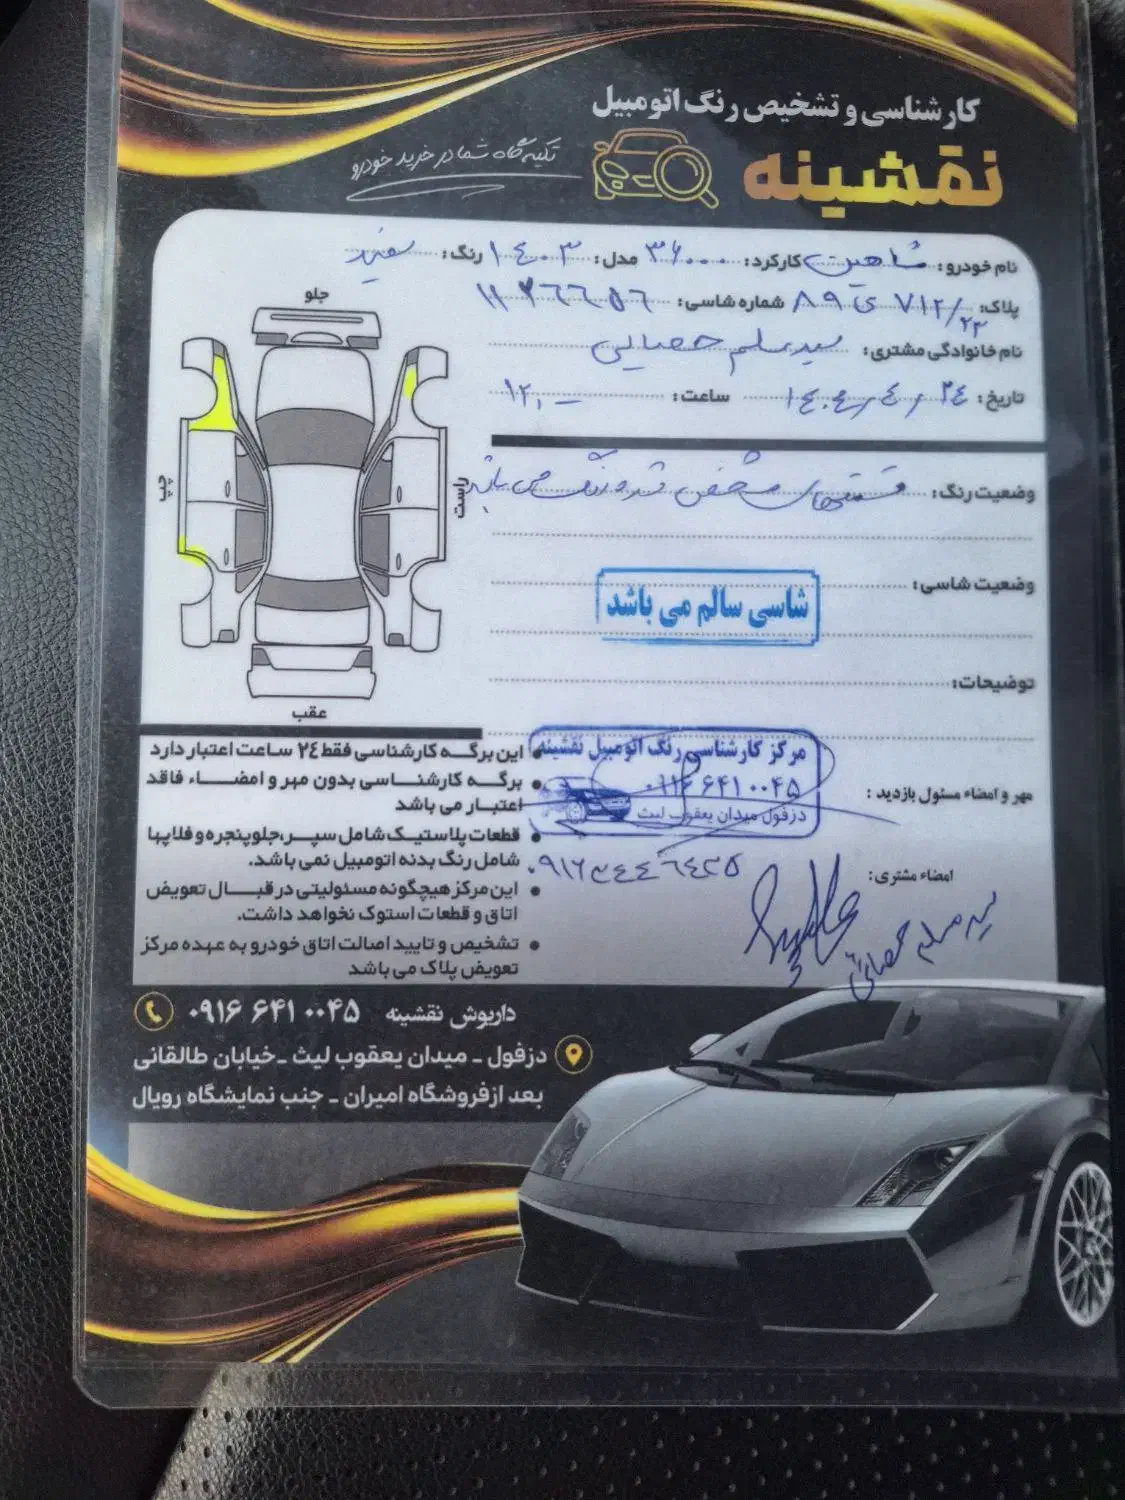 کارشناسی و تشخیص رنگ اتومبیل
نقشینه
تکیه گاه شما در خرید خودرو
نام خودرو: شاهین کارکرد: ۳۶۰۰۰ مدل: ۱۴۰۳ رنگ: سفید
پلاک: ۷۱۲/۲۳ ی ۸۹ شماره شاسی:
نام خانوادگی مشتری: سید مسلم
تاریخ: ۲۴ / ۴ / ۱۴۰۴ ساعت: ۱۲,۰۰
جلو
چپ
راست
عقب
وضعیت رنگ: قسمتهای مشخص شده رنگ می باشد
وضعیت شاسی:
شاسی سالم می باشد
توضیحات:
این برگه کارشناسی فقط ۲۴ ساعت اعتبار دارد
برگه کارشناسی بدون مهر و امضاء فاقد
اعتبار می باشد
قطعات پلاستیک شامل سپر،جلوپنجره و فلاپها
شامل رنگ بدنه اتومبیل نمی باشد.
این مرکز هیچگونه مسئولیتی در قبال تعویض
اتاق و قطعات استوک نخواهد داشت.
تشخیص و تایید اصالت اتاق خودرو به عهده مرکز
تعویض پلاک می باشد
مهر و امضاء مسئول بازدید :
مرکز کارشناسی رنگ اتومبیل نقشینه
۰۹۱۶ ۶۴۱ ۰۰۴۵
دزفول میدان یعقوب لیث
امضاء مشتری:
سید مسلم
داریوش نقشینه ۰۹۱۶ ۶۴۱ ۰۰۴۵
دزفول - میدان یعقوب لیث - خیابان طالقانی
بعد از فروشگاه امیران - جنب نمایشگاه رویال